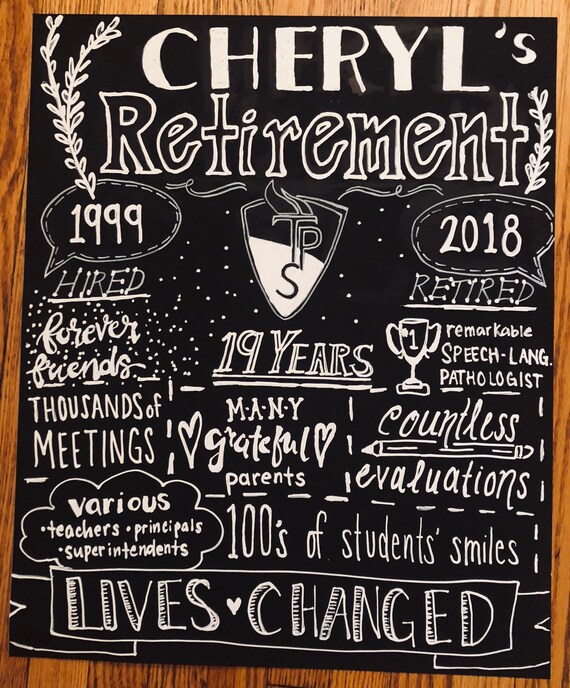 CHERYL's
Retirement
1999
HIRED
TPS
2018
RETIRED
forever
friends
19 YEARS
#1
remarkable
SPEECH-LANG.
PATHOLOGIST
THOUSANDS of
MEETINGS
M·A·N·Y
grateful
parents
countless
evaluations
various
•teachers •principals
•superintendents
100's of students' smiles
LIVES CHANGED